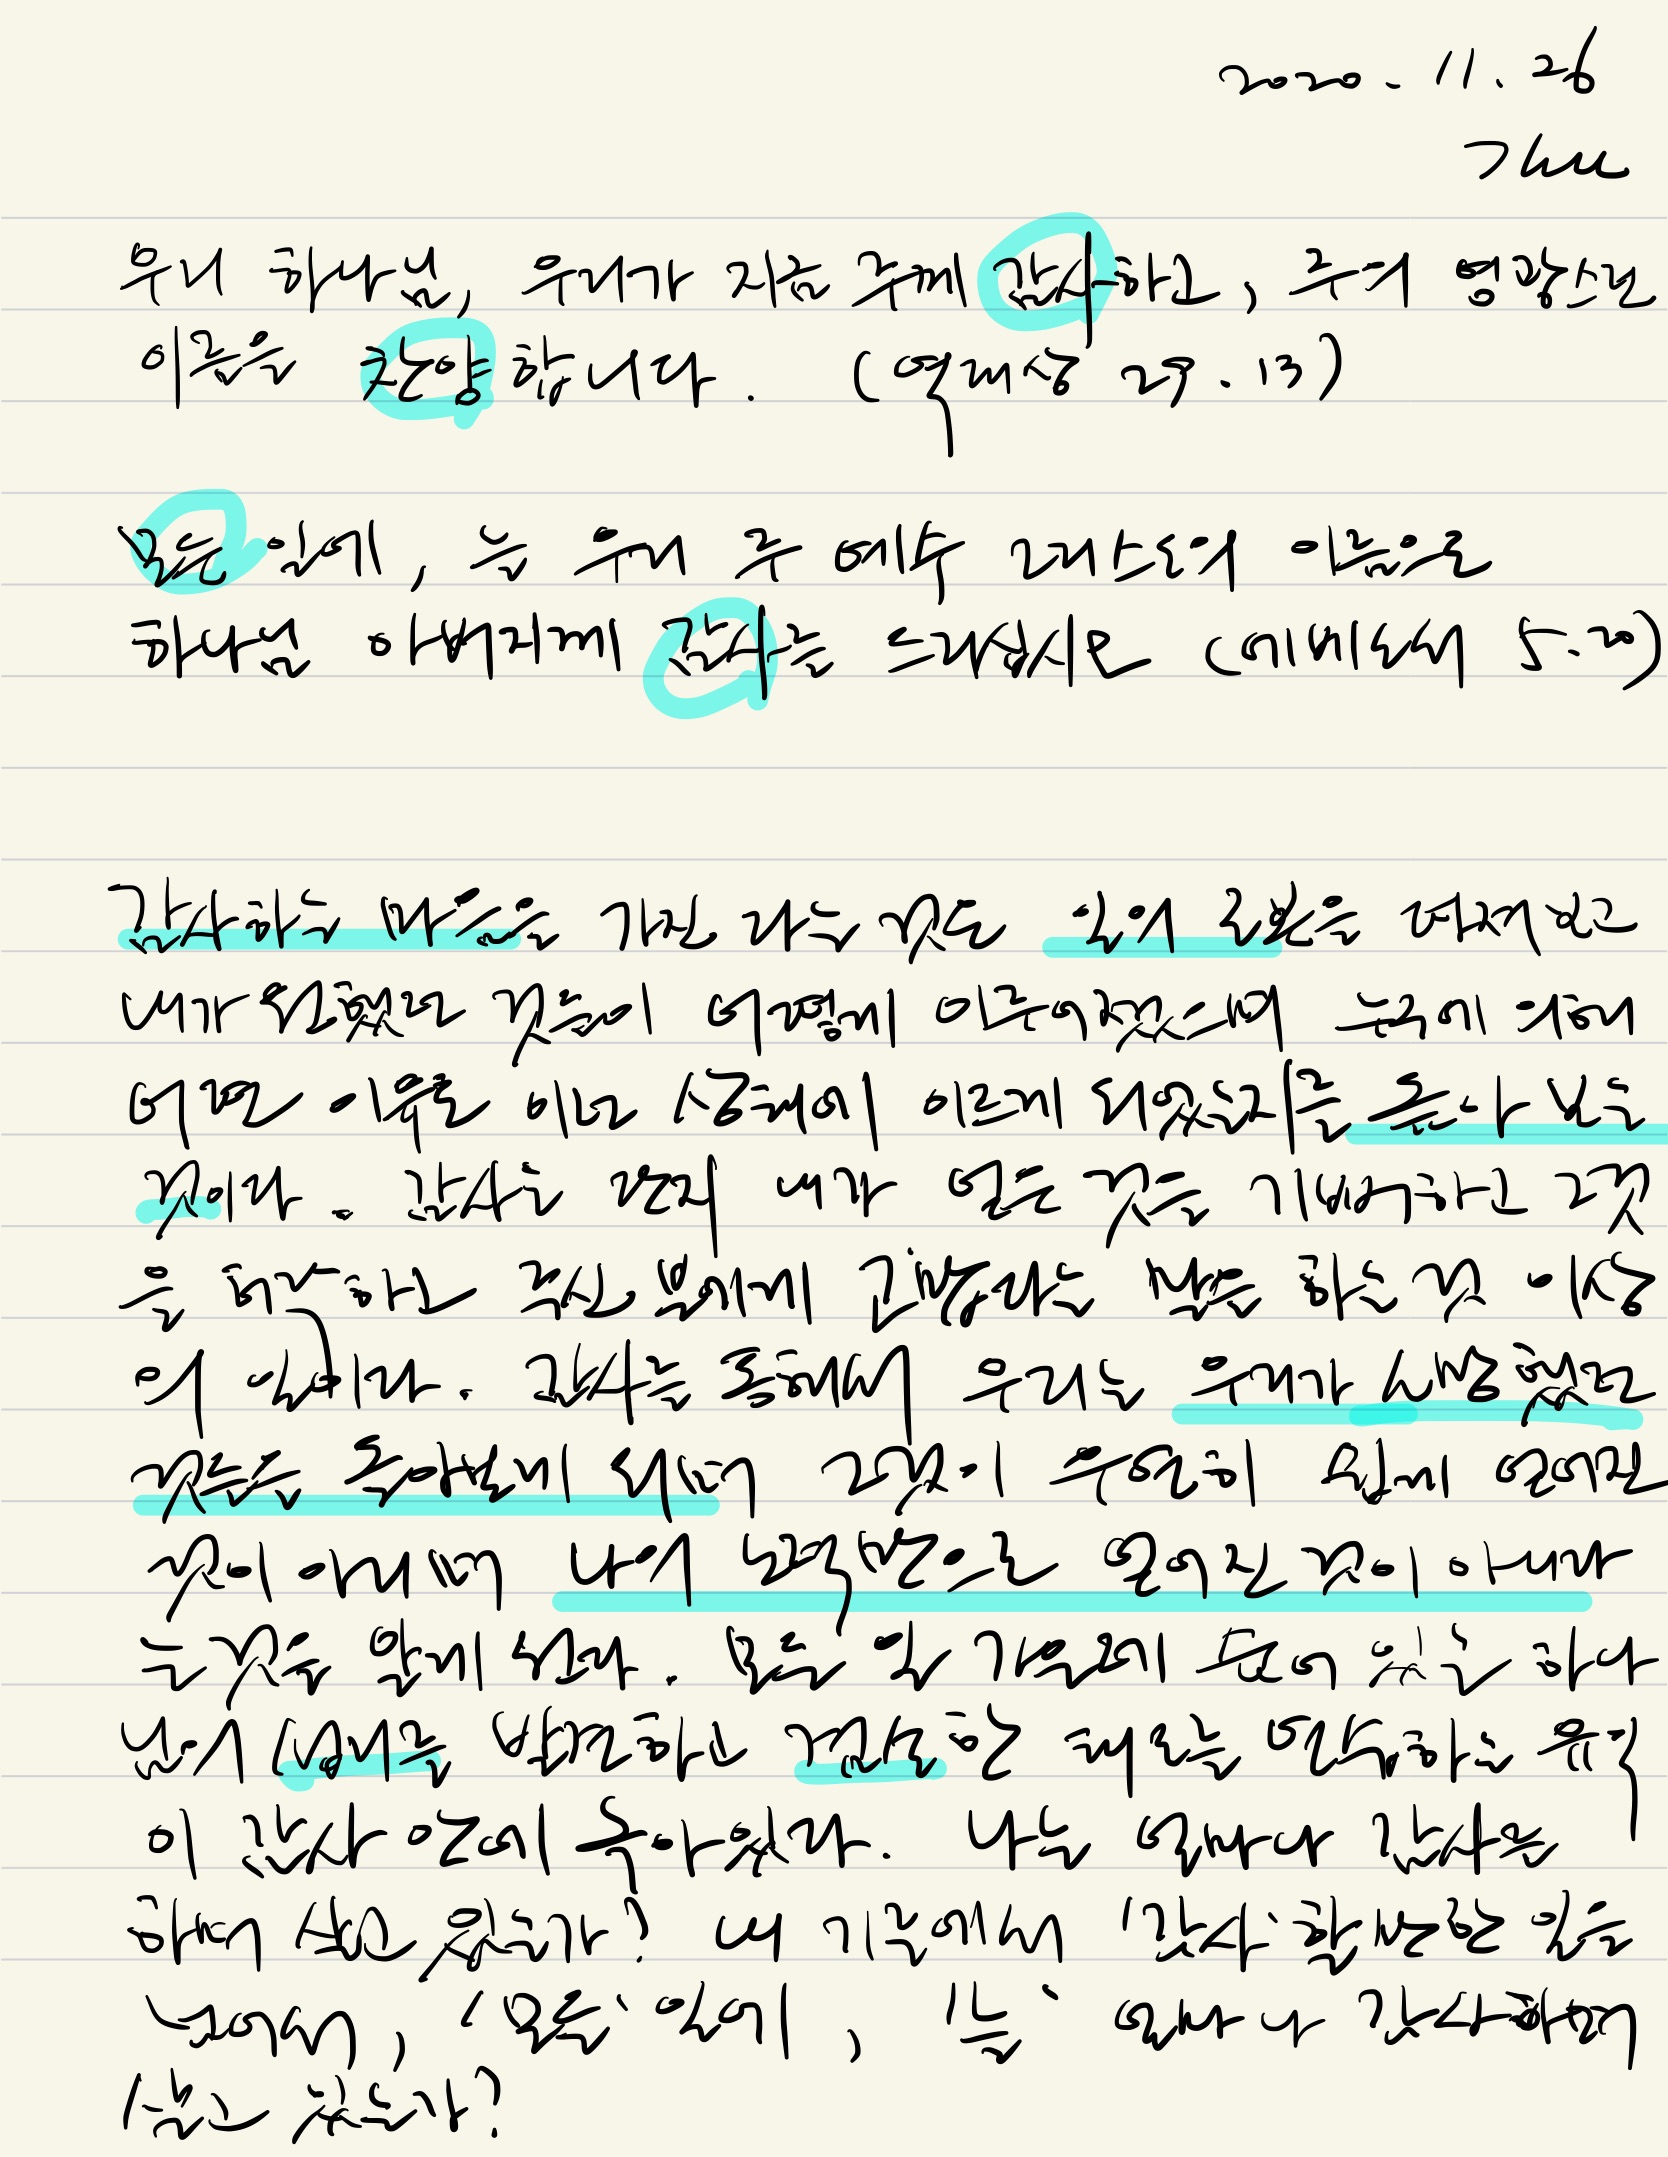 2020. 11. 26
Thu
우리 하나님, 우리가 지금 주께 감사하고, 주의 영광스런
이름을 찬양합니다. (역대상 29.13)
모든 일에, 늘 우리 주 예수 그리스도의 이름으로
하나님 아버지께 감사를 드리십시오 (에베소서 5.20)
감사하는 마음을 가진 다는 것도 일의 근본을 따져보고
내가 원했던 것들이 어떻게 이루어졌으며 누구에 의해
어떤 이유로 이런 상태에 이르게 되었는지를 돌아 보는
것이다. 감사는 단지 내가 얻은 것을 기뻐하고 그것
을 허락하고 주신 분에게 고맙다는 말을 하는 것 이상
의 일이다. 감사를 통해서 우리는 우리가 소망했던
것들을 돌아보게 되며 그것이 우연히 쉽게 얻어진
것이 아니며 나의 노력만으로 얻어진 것이 아니라
는 것을 알게 된다. 모든 일 가운데 숨어 있는 하나
님의 섭리를 발견하고 겸손한 태도를 연습하는 유익
이 감사 안에 녹아있다. 나는 얼마나 감사를
하며 살고 있는가? 내 기준에서 '감사' 할만한 일을
넘어서, '모든' 일에, '늘' 얼마나 감사하며
살고 있는가?